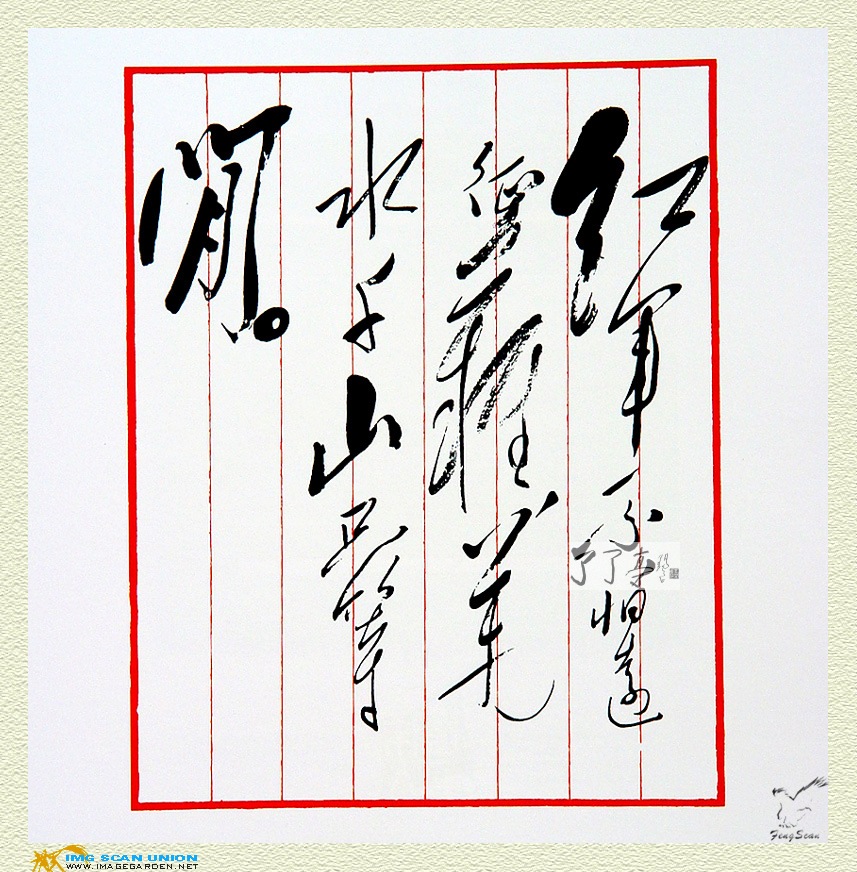 紅軍不怕遠
征難萬
水千山只等
閒。
了了亭
FengScan
IMG SCAN UNION
WWW.IMAGEGARDEN.NET